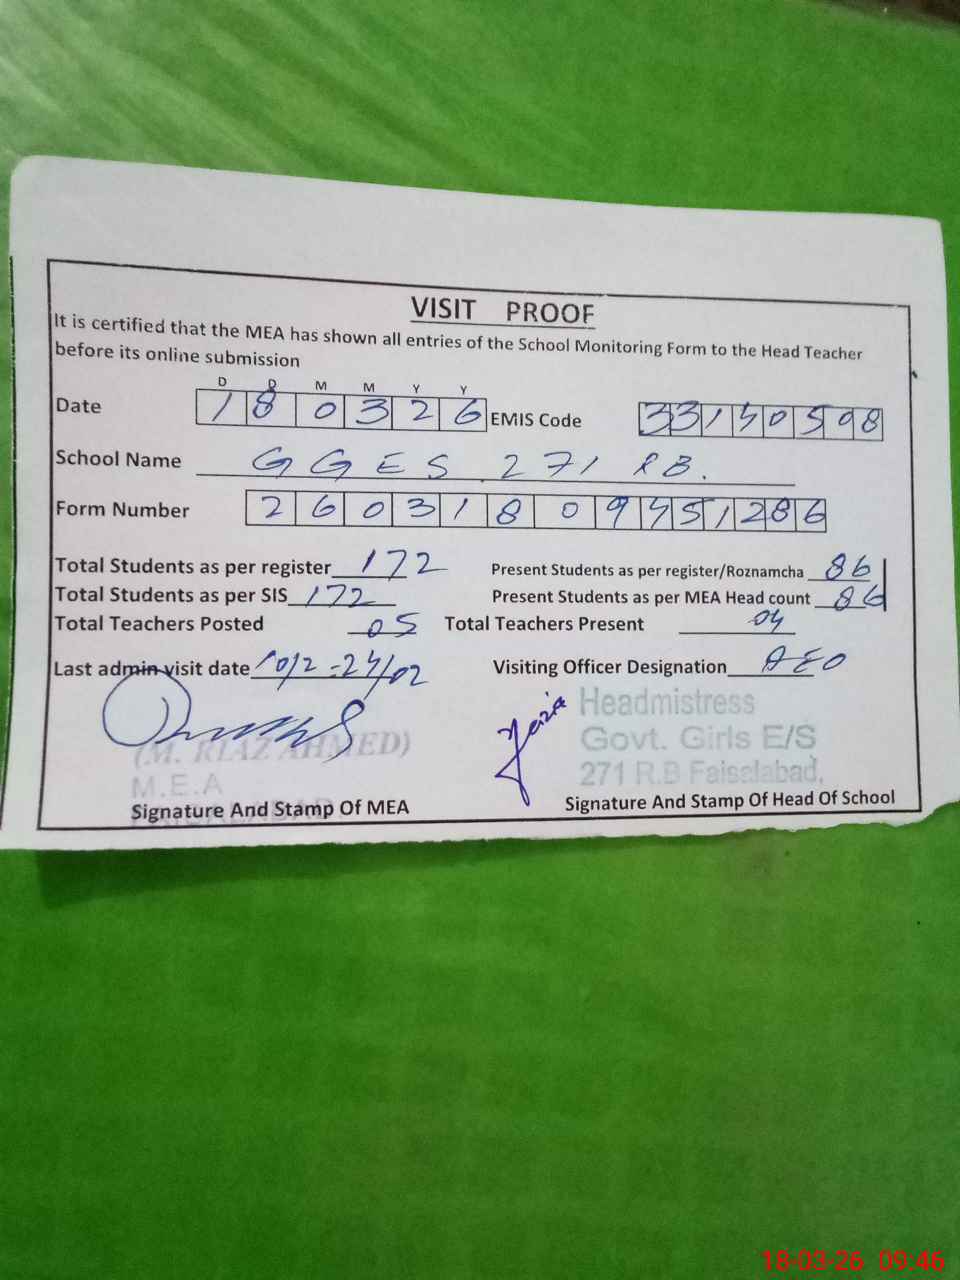 VISIT PROOF
It is certified that the MEA has shown all entries of the School Monitoring Form to the Head Teacher
before its online submission
D D M M Y Y
Date 18 03 26 EMIS Code 33140598
School Name GGES 271 RB.
Form Number 26031809451286
Total Students as per register 172 Present Students as per register/Roznamcha 86
Total Students as per SIS 172 Present Students as per MEA Head count 86
Total Teachers Posted 05 Total Teachers Present 04
Last admin visit date 10/2 - 24/02 Visiting Officer Designation AEO
(M. RIAZ AHMED)
M.E.A
Signature And Stamp Of MEA
Headmistress
Govt. Girls E/S
271 R.B Faisalabad.
Signature And Stamp Of Head Of School
18-03-26 09:46